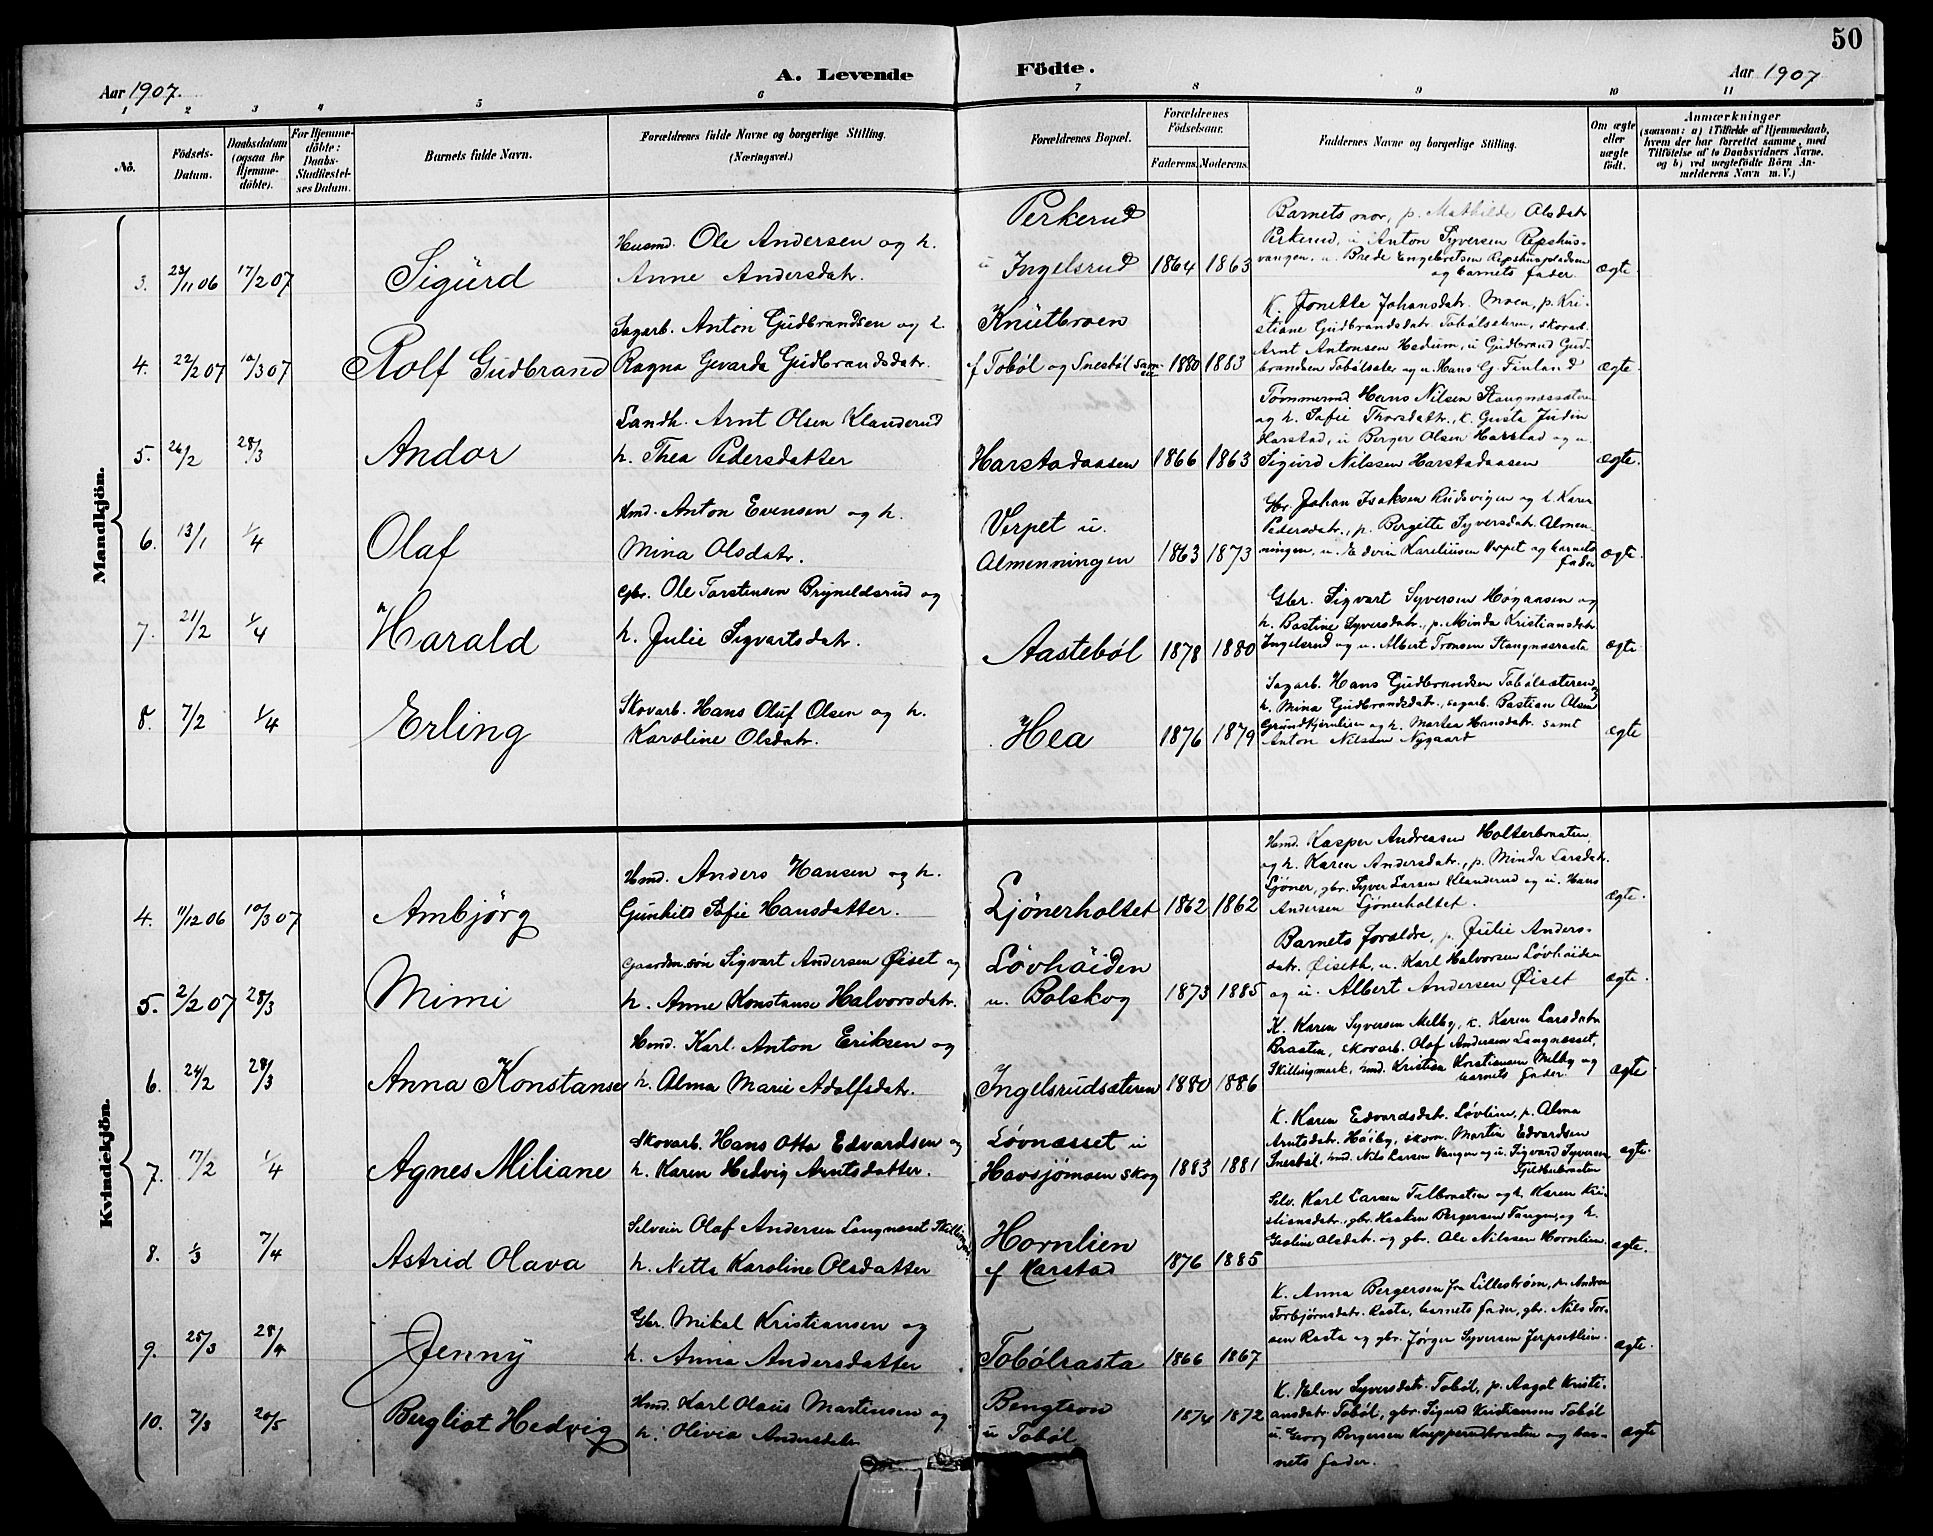 50
A. Levende Födte.
Aar 1907.
Aar 1907
1 2 3 4 5 6 7 8 9 10 11
No.
Födsels-Datum.
Daabsdatum (ogsaa for Hjemmedöbte).
For Hjemmedöbte: Daabs-Stadfæstelses Datum.
Barnets fulde Navn.
Forældrenes fulde Navne og borgerlige Stilling. (Næringsvei.)
Forældrenes Bopæl.
Forældrenes Födselsaar.
Faderens. Moderens.
Faddernes Navne og borgerlige Stilling.
Om ægte eller uægte födt.
Anmærkninger
(saasom: a) i Tilfælde af Hjemmedaab,
hvem der har forrettet samme, med
Tilföielse af to Daabsvidners Navne,
og b) ved uægtefödte Börn An-
melderens Navn m. V.)
Mandkjön.
3. 23/11 06 17/2 07 Sigurd
Husmd. Ole Andersen og h.
Anne Andersdatr.
Perkerud
u Ingelsrud 1864 1863
Barnets mor, p. Mathilde Olsdatr
Perkerud, u Anton Syversen Repshus-
vangen, u. Brede Engebretsen Repshuspladsen
og barnets fader. ægte
4. 22/2 07 10/3 07 Rolf Gudbrand
Sagarb. Anton Gudbrandsen og h.
Ragna Gevarda Gudbrandsdatr.
Knutbroen
f Tobøl og Snesbøl Sam- 1880 1883
K. Jonette Johansdatr. Moen, p. Kri-
stiane Gudbrandsdatr. Tobølsæteren, skovarb.
Arnt Antonsen Hedum, u Gudbrand Gud-
brandsen Tobølsæter og u Hans G. Finland ægte.
5. 26/2 28/3 Andor
Landh. Arnt Olsen Klanderud
h. Thea Pedersdatter
Harstadaasen 1866 1863
Tømmermd Hans Nilsen Stangnæssæteren
og h. Sofie Thorsdatr, k. Gusta Judin
Harstad, u Berger Olsen Harstad og u.
Sigurd Nilssen Harstadaasen ægte.
6. 13/1 1/4 Olaf
Hmd. Anton Evensen og h.
Mina Olsdatr.
Verpet u.
Almenningen 1863 1873
Gbr. Johan Isaksen Rudsvigen og h. Karen
Pedersdatr., p. Bergitte Syversdatr. Almen-
ningen, u. Edvin Kareliusen Verpet og barnets
fader ægte.
7. 21/2 1/4 Harald
Gbr. Ole Torstensen Brynildsrud og
h. Julie Sigvartsdatr.
Aastebøl 1878 1880
Gbr. Sigvart Syversen Høgaasen og
h. Bastine Syversdatr., p. Minda Kristiansdatr.
Ingelsrud og u. Albert Tronsen Stangnæsrasta ægte
8. 7/2 1/4 Erling
Skovarb. Hans Oluf Olsen og h.
Karoline Olsdatr.
Hea 1876 1879
Sagarb. Hans Gudbrandsen Tobølsæteren og
h. Mina Gudbrandsdatr., sagarb. Bastian Olsen
Grundtjernlien og h. Martea Hansdatr. samt
Anton Nilssen Nygaard ægte
Kvindekjön.
4. 11/12 06 10/3 07 Ambjørg
Hmd. Anders Hansen og h.
Gunhild Sofie Hansdatter.
Ljönerholtet 1862 1862
Hmd. Kasper Andreasen Holterbraaten
og h. Karen Andersdatr., p. Minda Larsdatr.
Ljöner, gbr. Syver Larsen Klanderud og u. Hans
Andersen Ljönerholtet. ægte.
5. 2/2 07 28/3 Mimi
Gaardm.søn Sigvart Andersen Øiset og
h. Anne Konstanse Halvorsdatr.
Løvhöiden
u. Bolskog 1873 1885
Barnets forældre, p. Julie Anders-
datr. Øiseth, u. Karl Halvorsen Løvhöiden
og u. Albert Andersen Øiset ægte.
6. 24/2 28/3 Anna Konstanse
Hmd. Karl Anton Eriksen og
h. Alma Marie Adolfsdatr.
Ingelsrudsæteren 1880 1886
K. Karen Syversen Melby, k. Karen Larsdatr
Braaten, skovarb. Olaf Andersen Langnæsset,
Skillingmark, hmd. Kristian Korstiansen Melby og
barnets fader ægte
7. 17/2 1/4 Agnes Miliane
Skovarb. Hans Otto Edvardsen og
h. Karen Hedvig Arntsdatter.
Løvnæsset u
Havsjømoen skog 1883 1881
K. Karen Edvardsdatr. Løvlien, p. Alma
Arntsdatr. Høiby, skom. Martin Edvardsen
Snesbøl, hmd. Nils Larsen Vangen og u. Sigvard Syversen
ægte.
8. 1/3 7/4 Astrid Olava
Selveier Olaf Andersen Langnæset
h. Netta Karoline Olsdatter
Hornlien
f Harstad 1876 1885
Selv. Karl Larsen og h. Karen Kri-
stiansdatr., gbr. Haaken Bergersen Tangen og h.
Gesline Olsdatr. og gbr. Ole Nilssen Hornlien. ægte.
9. 25/3 28/4 Jenny
Gbr. Mikal Kristiansen og
h. Anna Andersdatter
Tobölrasta 1866 1867
K. Anna Bergersen fra Lilleström, p. Andrea
Torbjørnsdatr. Rasta, barnets fader, gbr. Nils Tor-
sen Rasta og gbr. Jörger Syversen Jerpsetlien. ægte.
10. 7/3 20/5 Bergliot Hedvig
Hmd. Karl Olaus Martinsen og
h. Olivia Andersdatr
Bengtroen
u Tobøl 1874 1872
K. Helen Syversdatr. Tobøl, p. Aagot Kristi-
ansdatr. Tobøl, gbr. Sigurd Kristiansen Tobøl
u. Georg Bergersen Knapperudbraaten og bar-
nets fader. ægte